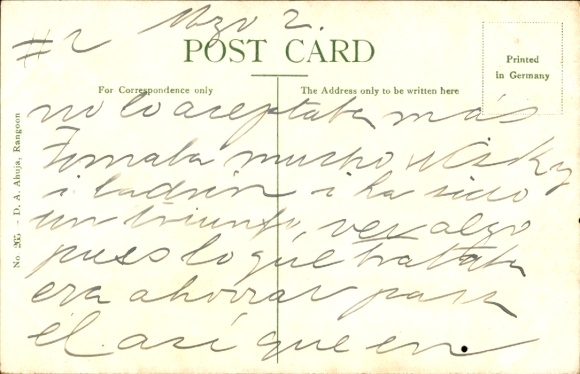 #2 Mzo 2.
POST CARD
Printed
in Germany
For Correspondence only
The Address only to be written here
No. 265 - D. A. Ahuja, Rangoon
no lo aceptaba más
Tomaba mucho wisky
i ladrón i ha sido
un triunfo, ver algo
pues lo que trataba
era ahorrar para
el así que en